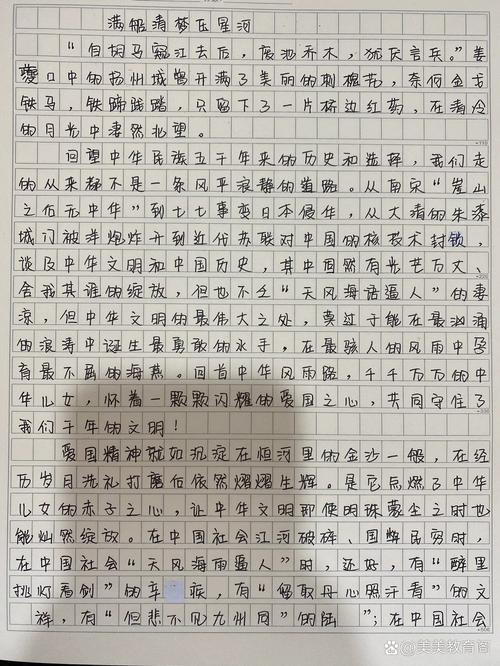 满船清梦压星河
“自胡马窥江去后，废池乔木，犹厌言兵。”姜
夔口中的扬州城曾开满了美丽的荆棘花，奈何金戈
铁马，铁蹄践踏，只留下了一片桥边红药，在清冷
的月光中凄然北望。
回望中华民族五千年来的历史和选择，我们走
的从来都不是一条风平浪静的道路。从南宋“崖山
之后无中华”到七七事变日本侵华，从大清的朱漆
城门被洋炮炸开到近代苏联对中国的核技术封锁，
谈及中华文明和中国历史，其中固然有光芒万丈、
舍我其谁的绽放，但也不乏“天风海语逼人”的凄
凉，但中华文明的最伟大之处，莫过于能在最汹涌
的浪涛中诞生最勇敢的水手，在最骇人的风雨中孕
育最不屈的海燕。回首中华风雨路，千千万万的中
华儿女，怀着一颗颗闪耀的爱国之心，共同守住了
我们千年的文明！
爱国精神就如沉淀在恒河里的金沙一般，在经
历岁月洗礼打磨后依然熠熠生辉。是它点燃了中华
儿女的赤子之心，让中华文明即使明珠蒙尘之时也
能灿然绽放。在中国社会江河破碎、国弊民穷时，
在中国社会“天风海雨逼人”时，还好，有“醉里
挑灯看剑”的辛疾，有“留取丹心照汗青”的文
祥，有“但悲不见九州同”的陆”；在中国社会
美美教育阁